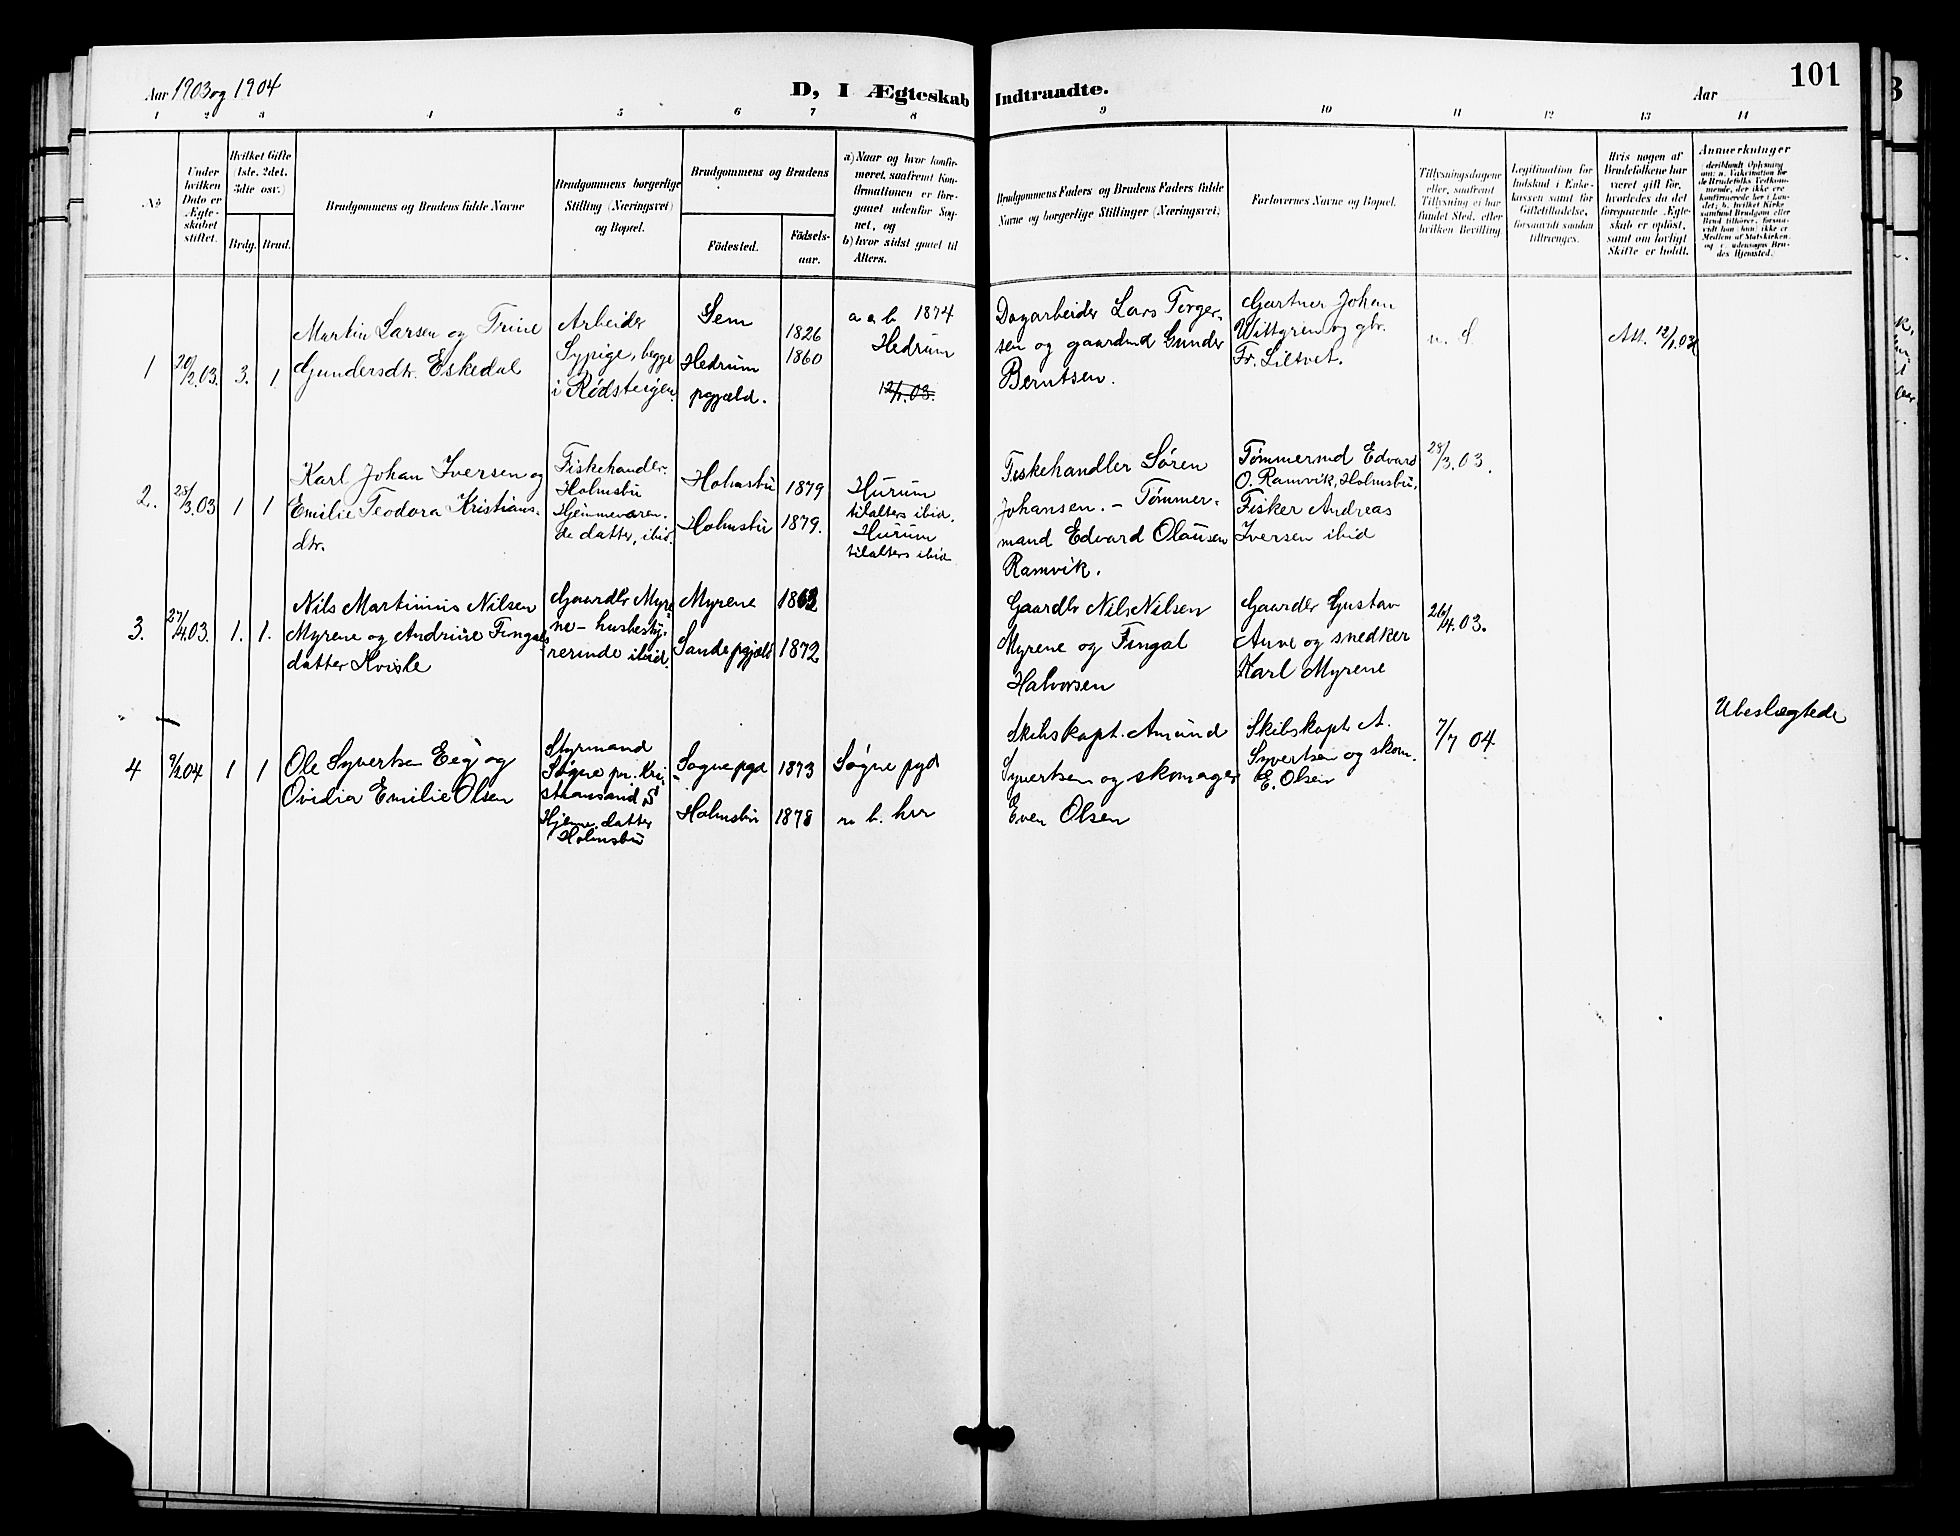 Aar 1903 og 1904
D, I Ægteskab Indtraadte.
Aar
101
1 2 3 4 5 6 7 8 9 10 11 12 13 14
No
Under
hvilken
Dato er
Ægte-
skabet
stiftet.
Hvilket Gifte
(1ste, 2det,
3die osv.)
Brdg. Brud.
Brudgommens og Brudens fulde Navne
Brudgommens borgerlige
Stilling (Næringsvei)
og Bopæl.
Brudgommens og Brudens
Fødested.
Fødsels-
aar.
a) Naar og hvor konfir-
meret, saafremt Kon-
firmationen er fore-
gaaet udenfor Sog-
net, og
b) hvor sidst gaaet til
Alters.
Brudgommens Faders og Brudens Faders fulde
Navne og borgerlige Stillinger (Næringsvei)
Forlovernes Navne og Bopæl.
Tillysningsdagene
eller, saafremt
Tillysning ei har
fundet Sted, efter
hvilken Bevilling
Legitimation for
Indskud i Enke-
kassen samt for
Giftetilladelse,
forsaavidt saadan
tiltrænges.
Hvis nogen af
Brudefolkene har
været gift før,
hvorledes da det
foregaaende Ægte-
skab er opløst,
samt om lovligt
Skifte er holdt.
Anmerkninger
(deriblandt Oplysning
om: a. Vakcination for
de Brudefolks Vedkom-
mende, der ikke ere
konfirmerede her i Lan-
det; b. hvilket Kirke-
samfund Brudgom eller
Brud tilhører, forsaa-
vidt han (hun) ikke er
Medlem af Statskirken,
og c. udensogns Bru-
des Hjemsted.)
1
20/2.03.
3.
1
Martin Larsen og Trine
Gundersdtr. Eskedal
Arbeider
Sypige, begge
i Rødsteigen.
Sem
Hedrum
pgjæld.
1826
1860
a a b. 1874
Hedrum
12/1.03.
Dagarbeider Lars Torger-
sen og gaardmd Gunder
Berntsen.
Gartner Johan
Wittgren og gbr.
Fr. Liltvet.
Att. 12/1.03
2.
28/3.03
1
1
Karl Johan Iversen og
Emilie Teodora Kristians-
dtr.
Fiskehandler.
Holmsbu
Hjemmeværen-
de datter, ibid.
Holmsbu
Holmsbu
1879
1879.
Hurum
tilalters ibid.
Hurum
tilalters ibid
Fiskehandler Søren
Johansen. - Tømmer-
mand Edvard Olausen
Ramvik.
Tømmermd Edvard
O. Ramvik, Holmsbu,
Fisker Andreas
Iversen ibid
28/3.03.
3.
27/4.03.
1.
1.
Nils Martinius Nilsen
Myrene og Andrine Fingals
datter Kvisle
Gaardbr Myre
ne - husbesty-
rerinde ibid.
Myrene
Sande pgjæld
1872
Gaardbr Nils Nilsen
Myrene og Fingal
Halvorsen
Gaardbr Gustav
Auve og snedker
Karl Myrene
26/4.03.
4
1
1
Ole Syvertsen Eeg og
Ovidia Emilie Olsen
Styrmand
Søgne pr. Kri-
stiansand S
Hjemv. datter
Holmsbu
Søgne pgd
Holmsbu
1873
1878
Søgne pgd
a b. her
Skibskapt. Amund
Syvertsen og skomager
Even Olsen
Skibskapt. A.
Syvertsen og skom.
E. Olsen
7/7 04
Ubeslægtede